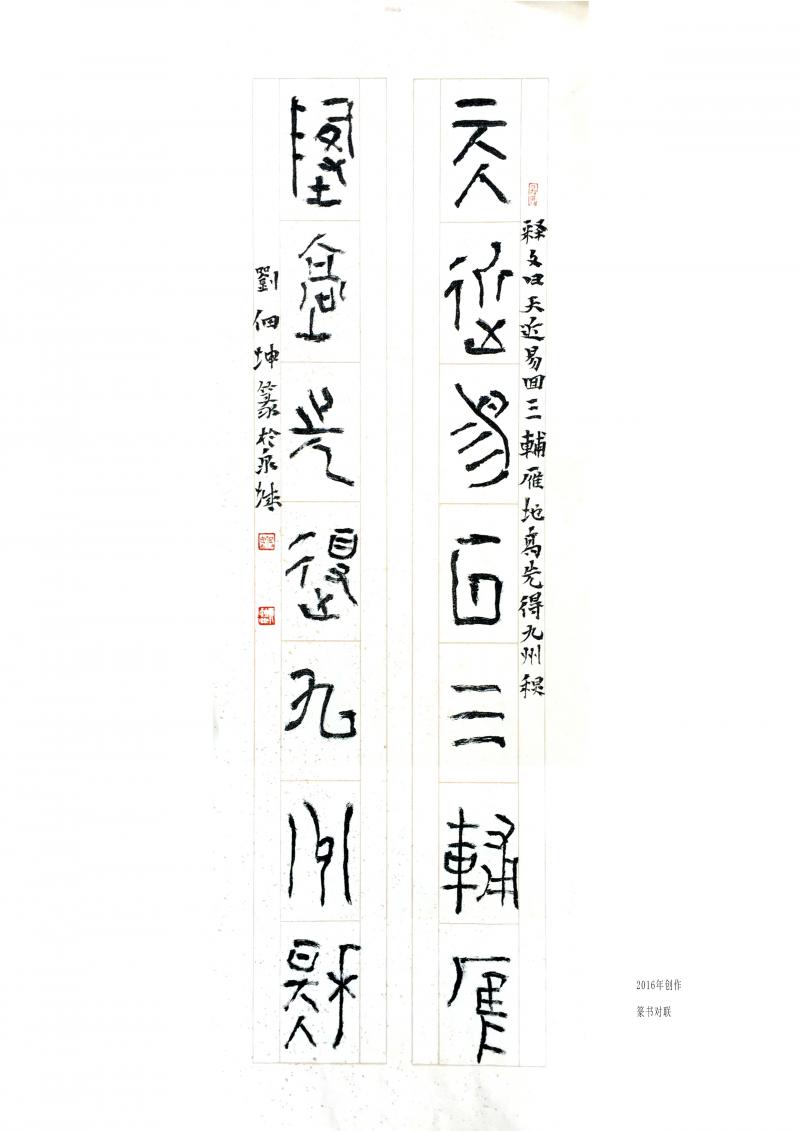 天近易回三輔雁
释文曰天近易回三輔雁地高先得九州穐
地高先得九州穐
劉佃坤篆於泉城
2016年创作
篆书对联